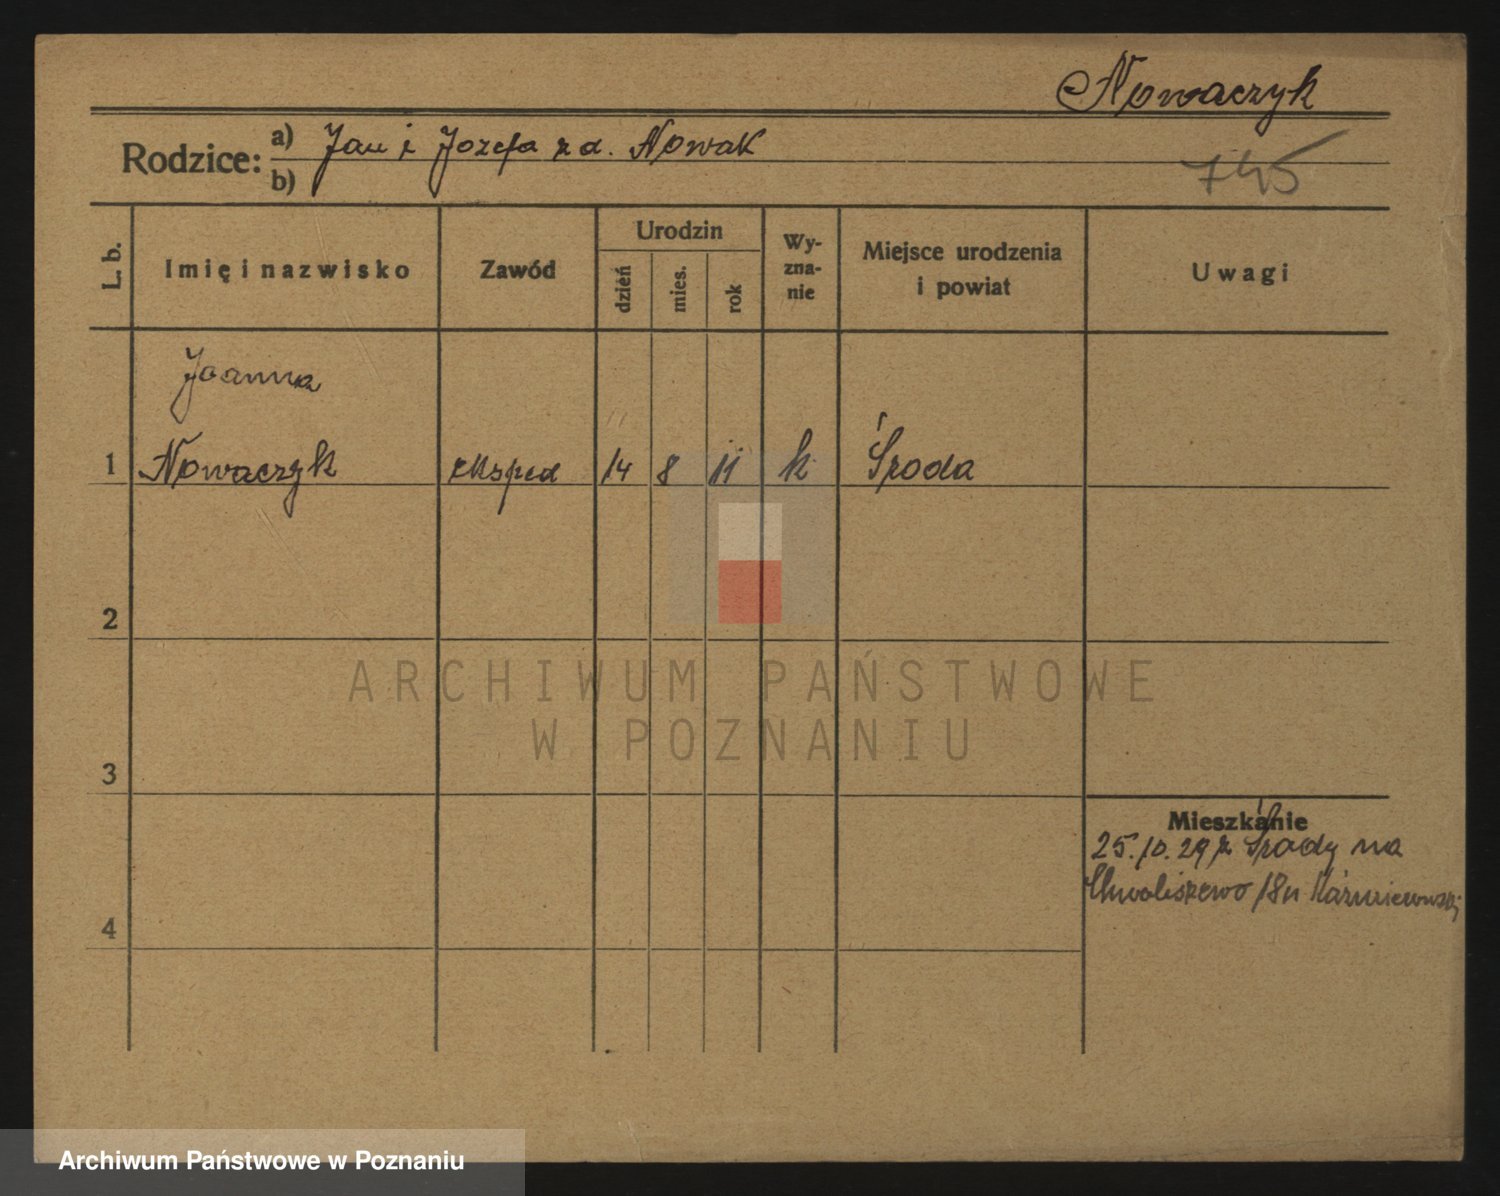 Nowaczyk
Rodzice: a) Jan i Jozefa z d. Nowak
b)
745
L. b.
Imię i nazwisko
Zawód
Urodzin
dzień
mies.
rok
Wy-
zna-
nie
Miejsce urodzenia
i powiat
Uwagi
Joanna
1 Nowaczyk eksped 14 8 11 k Środa
2
3
4
Mieszkanie
25.10.29 z Środy na
Chwaliszewo 18 u
ARCHIWUM PAŃSTWOWE
W POZNANIU
Archiwum Państwowe w Poznaniu